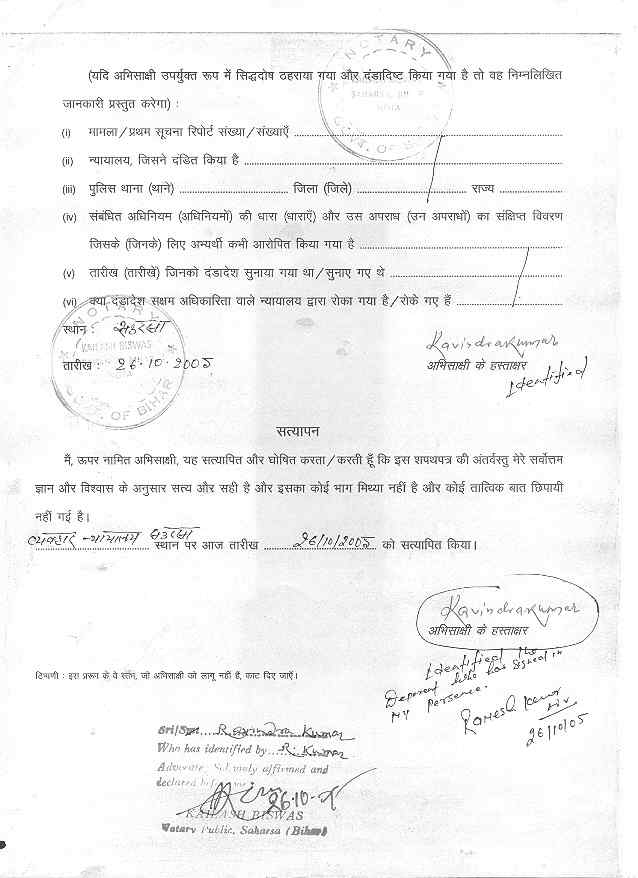 NOTARY
SAHARSA, BIHAR
INDIA
GOVT. OF BIHAR
(यदि अभिसाक्षी उपर्युक्त रूप में सिद्धदोष ठहराया गया और दंडादिष्ट किया गया है तो वह निम्नलिखित
जानकारी प्रस्तुत करेगा) :
(i) मामला/प्रथम सूचना रिपोर्ट संख्या/संख्याएँ
(ii) न्यायालय, जिसने दंडित किया है
(iii) पुलिस थाना (थाने) जिला (जिले) राज्य
(iv) संबंधित अधिनियम (अधिनियमों) की धारा (धाराएँ) और उस अपराध (उन अपराधों) का संक्षिप्त विवरण
जिसके (जिनके) लिए अभ्यर्थी कभी आरोपित किया गया है
(v) तारीख (तारीखें) जिनको दंडादेश सुनाया गया था/सुनाए गए थे
(vi) क्या दंडादेश सक्षम अधिकारिता वाले न्यायालय द्वारा रोका गया है/रोके गए हैं
NOTARY
KAILASH BISWAS
GOVT. OF BIHAR
स्थान : सहरसा
तारीख : 26.10.2005
Ravindra kumar
अभिसाक्षी के हस्ताक्षर
Identified
सत्यापन
मैं, ऊपर नामित अभिसाक्षी, यह सत्यापित और घोषित करता/करती हूँ कि इस शपथपत्र की अंतर्वस्तु मेरे सर्वोत्तम
ज्ञान और विश्वास के अनुसार सत्य और सही है और इसका कोई भाग मिथ्या नहीं है और कोई तात्विक बात छिपायी
नहीं गई है।
व्यवहार न्यायालय सहरसा स्थान पर आज तारीख 26/10/2005 को सत्यापित किया।
Ravindra kumar
अभिसाक्षी के हस्ताक्षर
टिप्पणी : इस प्ररूप के वे स्तंभ, जो अभिसाक्षी को लागू नहीं है, काट दिए जाएँ।
Identified the
Deponent who has signed in
my persence.
Ramesh Kumar
26/10/05
Sri/Smt. Ravindra Kumar
Who has identified by R. Kumar
Advocate Solemnly affirmed and
declared before me
26-10-05
KAILASH BISWAS
Notary Public, Saharsa (Bihar)